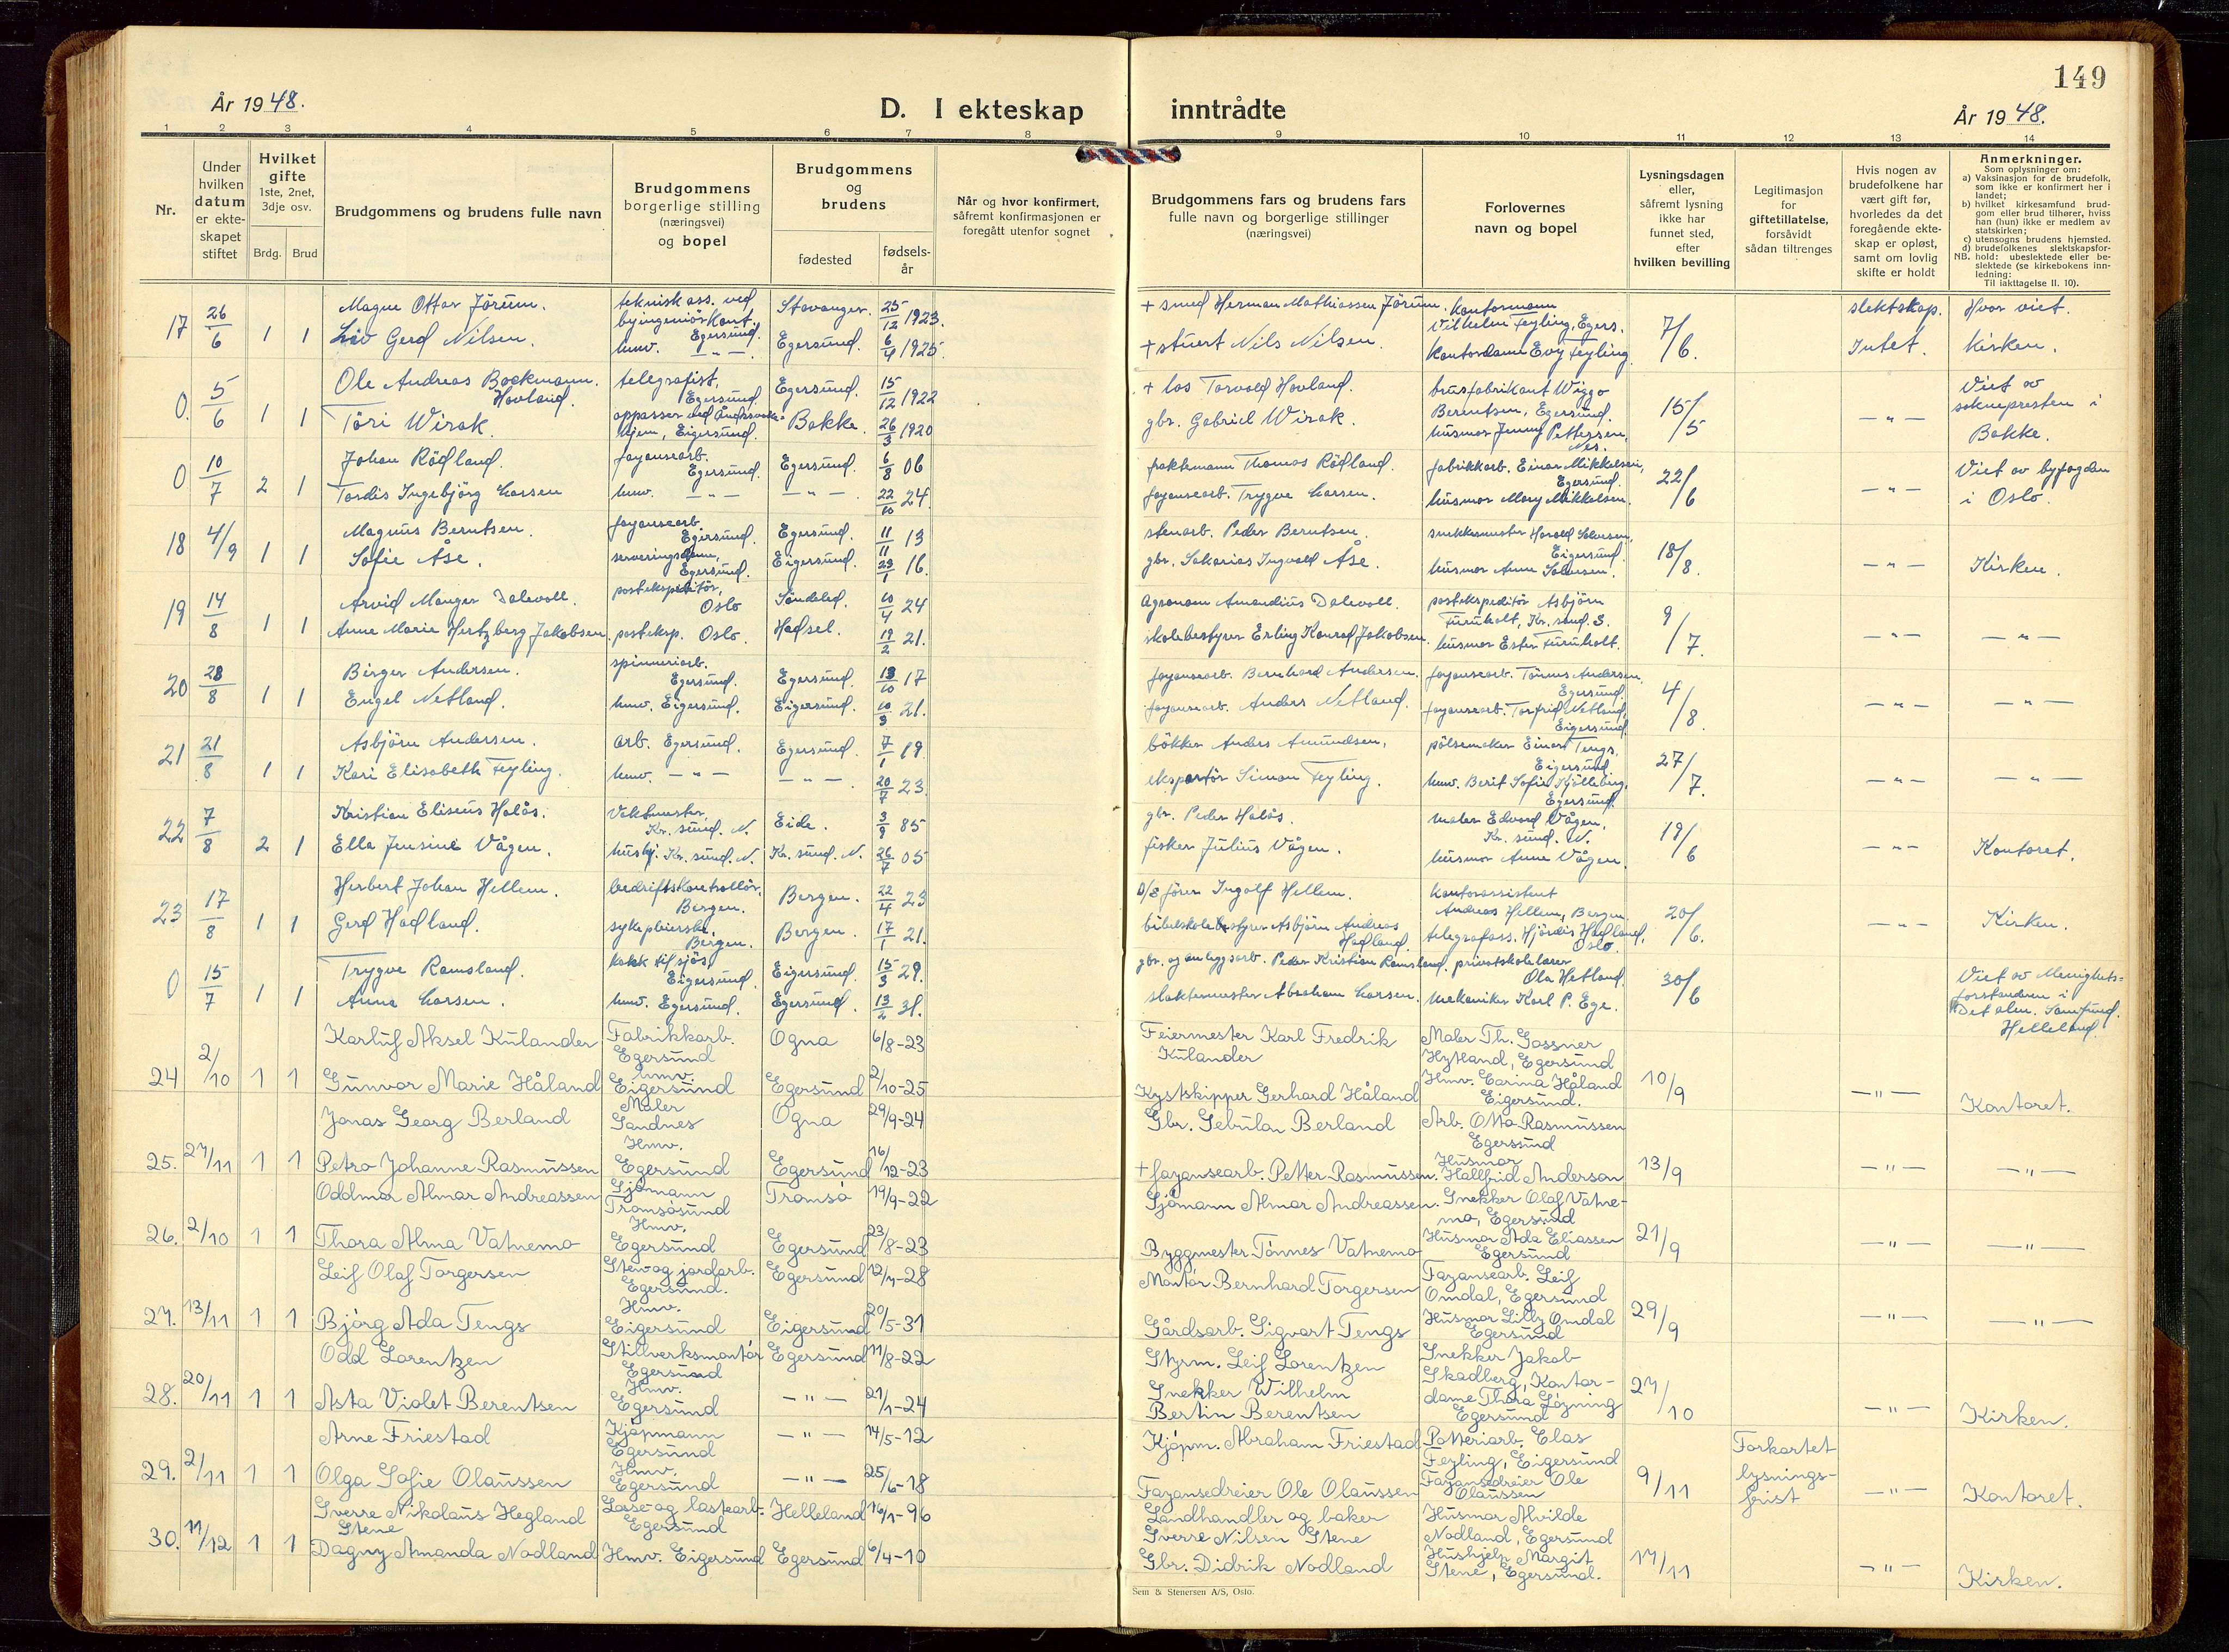 149
År 1948.
D. I ekteskap inntrådte
År 1948.
1 2 3 4 5 6 7 8 9 10 11 12 13 14
Nr.
Under hvilken datum er ekteskapet stiftet
Hvilket gifte 1ste, 2net, 3dje osv.
Brdg. Brud
Brudgommens og brudens fulle navn
Brudgommens borgerlige stilling (næringsvei) og bopel
Brudgommens og brudens
fødested
fødselsår
Når og hvor konfirmert, såfremt konfirmasjonen er foregått utenfor sognet
Brudgommens fars og brudens fars fulle navn og borgerlige stillinger (næringsvei)
Forlovernes navn og bopel
Lysningsdagen eller, såfremt lysning ikke har funnet sted, efter hvilken bevilling
Legitimasjon for giftetillatelse, forsåvidt sådan tiltrenges
Hvis nogen av brudefolkene har vært gift før, hvorledes da det foregående ekteskap er opløst, samt om lovlig skifte er holdt
Anmerkninger.
Som oplysninger om:
a) Vaksinasjon for de brudefolk, som ikke er konfirmert her i landet;
b) hvilket kirkesamfund brudgom eller brud tilhører, hviss han (hun) ikke er medlem av statskirken;
c) utensogns brudens hjemsted.
d) brudefolkenes slektskapsforhold: ubeslektede eller beslektede (se kirkebokens innledning:
NB.
Til iakttagelse II. 10).
17 26/6 1 1 Magne Ottar Jörum. teknisk ass. ved byingeniörkont. Egersund. Stavanger. 25/12 1923. + smed Herman Mathiassen Jörum. kontormann Vilhelm Feyling, Egers. 7/6. slektskap. Hvor viet.
Liv Gerd Nilsen. hmv. — " — Egersund. 6/4 1925. + stuert Nils Nilsen. kontordame Evy Feyling. Intet. Kirken.
0. 5/6 1 1 Ole Andreas Bockmann Hovland. telegrafist, Egersund. Egersund. 15/12 1922 + los Torvald Hovland. brusfabrikant Wiggo Berentsen, Egersund. 15/5 — " — Viet av soknepresten i Bakke.
Töri Wirak. oppasser ved Åndssvakehjem, Eigersund. Bakke. 26/3 1920 gbr. Gabriel Wirak. husmor Jenny Pettersen, Nes.
0 10/7 2 1 Johan Rödland. fayansearb. Egersund. Egersund. 6/8 06 fraktemann Thomas Rödland. fabrikkarb. Einar Mikkelsen, Egersund. 22/6 — " — Viet av byfogden i Oslo.
Tordis Ingebjörg Larsen hmv. — " — — " — 22/10 24. fayansearb. Trygve Larsen. husmor Mary Mikkelsen.
18 4/9 1 1 Magnus Berntsen. fayansearb. Egersund. Egersund. 11/11 13 stenarb. Peder Berntsen. snekkermester Harald Salvesen, Eigersund. 18/8. — " — Kirken.
Sofie Åse. serveringsdame, Egersund. Eigersund. 29/1 16. gbr. Sakarias Ingvald Åse. husmor Anne Salvesen.
19 14/8 1 1 Arvid Manger Dalevoll. postekspeditör, Oslo Söndeled. 10/4 24 Agronom Amandius Dalevoll. postekspeditör Asbjörn Furuholt, Kr. sand. S. 9/7. — " — — " —
Anne Marie Hertzberg Jakobsen. posteksp. Oslo. Hadsel. 19/2 21. skolebestyrer Erling Konrad Jakobsen. husmor Ester Furuholt.
20 28/8 1 1 Birger Andersen. spinneriarb. Egersund. Egersund. 13/10 17 fayansearb. Bernhard Andersen. fayansearb. Tönnes Andersen, Egersund. 4/8. — " — — " —
Engel Netland. hmv. Eigersund. Eigersund. 10/9 21. fayansearb. Anders Netland. fayansearb. Torfrid Netland, Eigersund.
21 21/8 1 1 Asbjörn Andersen. arb. Egersund. Egersund. 7/1 19. bökker Anders Amundsen, pölsemaker Einar Tengs. Eigersund 27/7. — " — — " —
Kari Elisabeth Feyling. hmv. — " — — " — 20/7 23. eksportör Simon Feyling. hmv. Berit Sofie Kjölleberg, Egersund.
22 7/8 2 1 Kristian Eliseus Halås. Vaktmester, Kr. sund. N. Eide. 3/9 85 gbr. Peder Halås. maler Edvard Vågen, Kr. sund. N. 19/6 — " — Kontoret.
Ella Jensine Vågen. hushj. Kr. sund. N. Kr. sund. N. 26/7 05 fisker Julius Vågen. husmor Anne Vågen.
23 17/8 1 1 Herbert Johan Hellem. bedriftskontrollör, Bergen. Bergen. 22/4 23 D/S förer Ingolf Hellem. kontorassistent Andreas Hellem, Bergen. 20/6. — " — Kirken.
Gerd Hadland. sykepleierske, Bergen. Bergen. 17/1 21. bibelskolebestyrer Asbjörn Andreas Hadland. telegrafass. Hjördis Hadland, Oslo.
0 15/7 1 1 Trygve Ramsland. kokk til sjös, Eigersund. Eigersund. 15/3 29. gbr. og anleggsarb. Peder Kristian Ramsland. privatskolelærer Ola Hetland. 30/6 Viet av Menighetsforstanderen i Det alm. Samfund. Helleland.
Anna Larsen. hmv. Egersund. Egersund. 13/2 31. slaktermester Abraham Larsen. mekaniker Karl P. Ege.
24 2/10 1 1 Karluf Aksel Kulander Fabrikkarb. Egersund Ogna 6/8-23 Feiermester Karl Fredrik Kulander Maler Th. Gassner Hytland, Egersund 10/9 — " — Kontoret.
Gunvor Marie Håland hmv. Eigersund Egersund 2/10-25 Kystskipper Gerhard Håland Hmv. Carina Håland Eigersund.
25. 27/11 1 1 Jonas Georg Berland Maler Sandnes Ogna 29/9-24 Gbr. Sebulon Berland Arb. Otto Rasmussen Egersund 13/9 — " — — " —
Petra Johanne Rasmussen Hmv. Egersund Egersund 16/12-23 + fayansearb. Petter Rasmussen. Husmor Hallfrid Anderson
26. 2/10 1 1 Oddmar Almar Andreassen Sjömann Tromsösund Tromsö 19/9-22 Sjömann Almar Andreassen. Snekker Olaf Vatnemo, Egersund 21/9 — " — — " —
Thora Alma Vatnemo Hmv. Egersund Egersund 23/8-23 Byggmester Tönnes Vatnemo Husmor Ada Eliassen Egersund
27. 13/11 1 1 Leif Olaf Torgersen Sten og jordarb. Egersund. Egersund 12/7-28 Montör Bernhard Torgersen Fayansearb. Leif Omdal, Egersund 29/9 — " — — " —
Bjórg Ada Tengs Hmv. Eigersund Eigersund 20/5-31 Gårdsarb. Sigvart Tengs Husmor Lilly Omdal Egersund
28. 20/11 1 1 Odd Lorentzen Stillverksmontör Egersund Egersund 11/8-22 Styrm. Leif Lorentzen Snekker Jakob Skadberg, Kontordame Thora Lögning Egersund 27/10 — " — Kirken.
Asta Violet Berentsen Hmv. Egersund — " — 21/1-24 Snekker Wilhelm Bertin Berentsen
29. 2/11 1 1 Arne Friestad Kjöpmann Egersund — " — 14/5-12 Kjöpm. Abraham Friestad Potteriarb. Elas Feyling, Eigersund 9/11 Forkortet lysningsfrist — " — Kontoret.
Olga Sofie Olaussen Hmv. Egersund — " — 25/6-18 Fayansedreier Ole Olaussen Fayansedreier Ole Olaussen
30. 11/12 1 1 Sverre Nikolaus Hegland Stene Losse og lastearb. Egersund Helleland 16/1-96 Landhandler og baker Sverre Nilsen Stene Husmor Alvilde Nodland, Egersund 17/11 — " — Kirken.
Dagny Amanda Nodland Hmv. Eigersund Egersund 6/4-10 Gbr. Didrik Nodland Hushjelp Margit Stene, Egersund.
Sem & Stenersen A/S, Oslo.